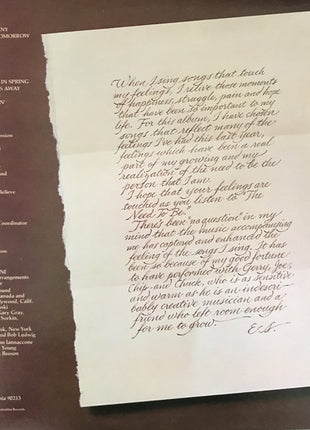 NY
TOMORROW
IN SPRING
S AWAY
N'
ension
e
elieve
Coordinator
NE
rrangements
ound
anada and
lywood, Calif.
oski
Gary Gray,
Sorkin,
k, New York
nd Bob Ludwig
om Iannaccone
Young
n Beeson
ia 90213
When I sing songs that touch
my feelings, I relive those moments
of happiness, struggle, pain and hope
that have been so important to my
life. For this album, I have chosen
songs that reflect many of the
feelings I've had this last year,
feelings which have been a real
part of my growing and my
realization of the need to be the
person that I am.
I hope that your feelings are
touched as you listen to The
Need To Be.
There's been no question in my
mind that the music accompanying
me has captured and enhanced the
feeling of the songs I sing. It has
been so because of my good fortune
to have performed with Gary, Joe,
Chip and Chuck, who is as sensitive
and warm as he is an indescri-
bably creative musician and a
friend who left room enough
for me to grow.
E.S.